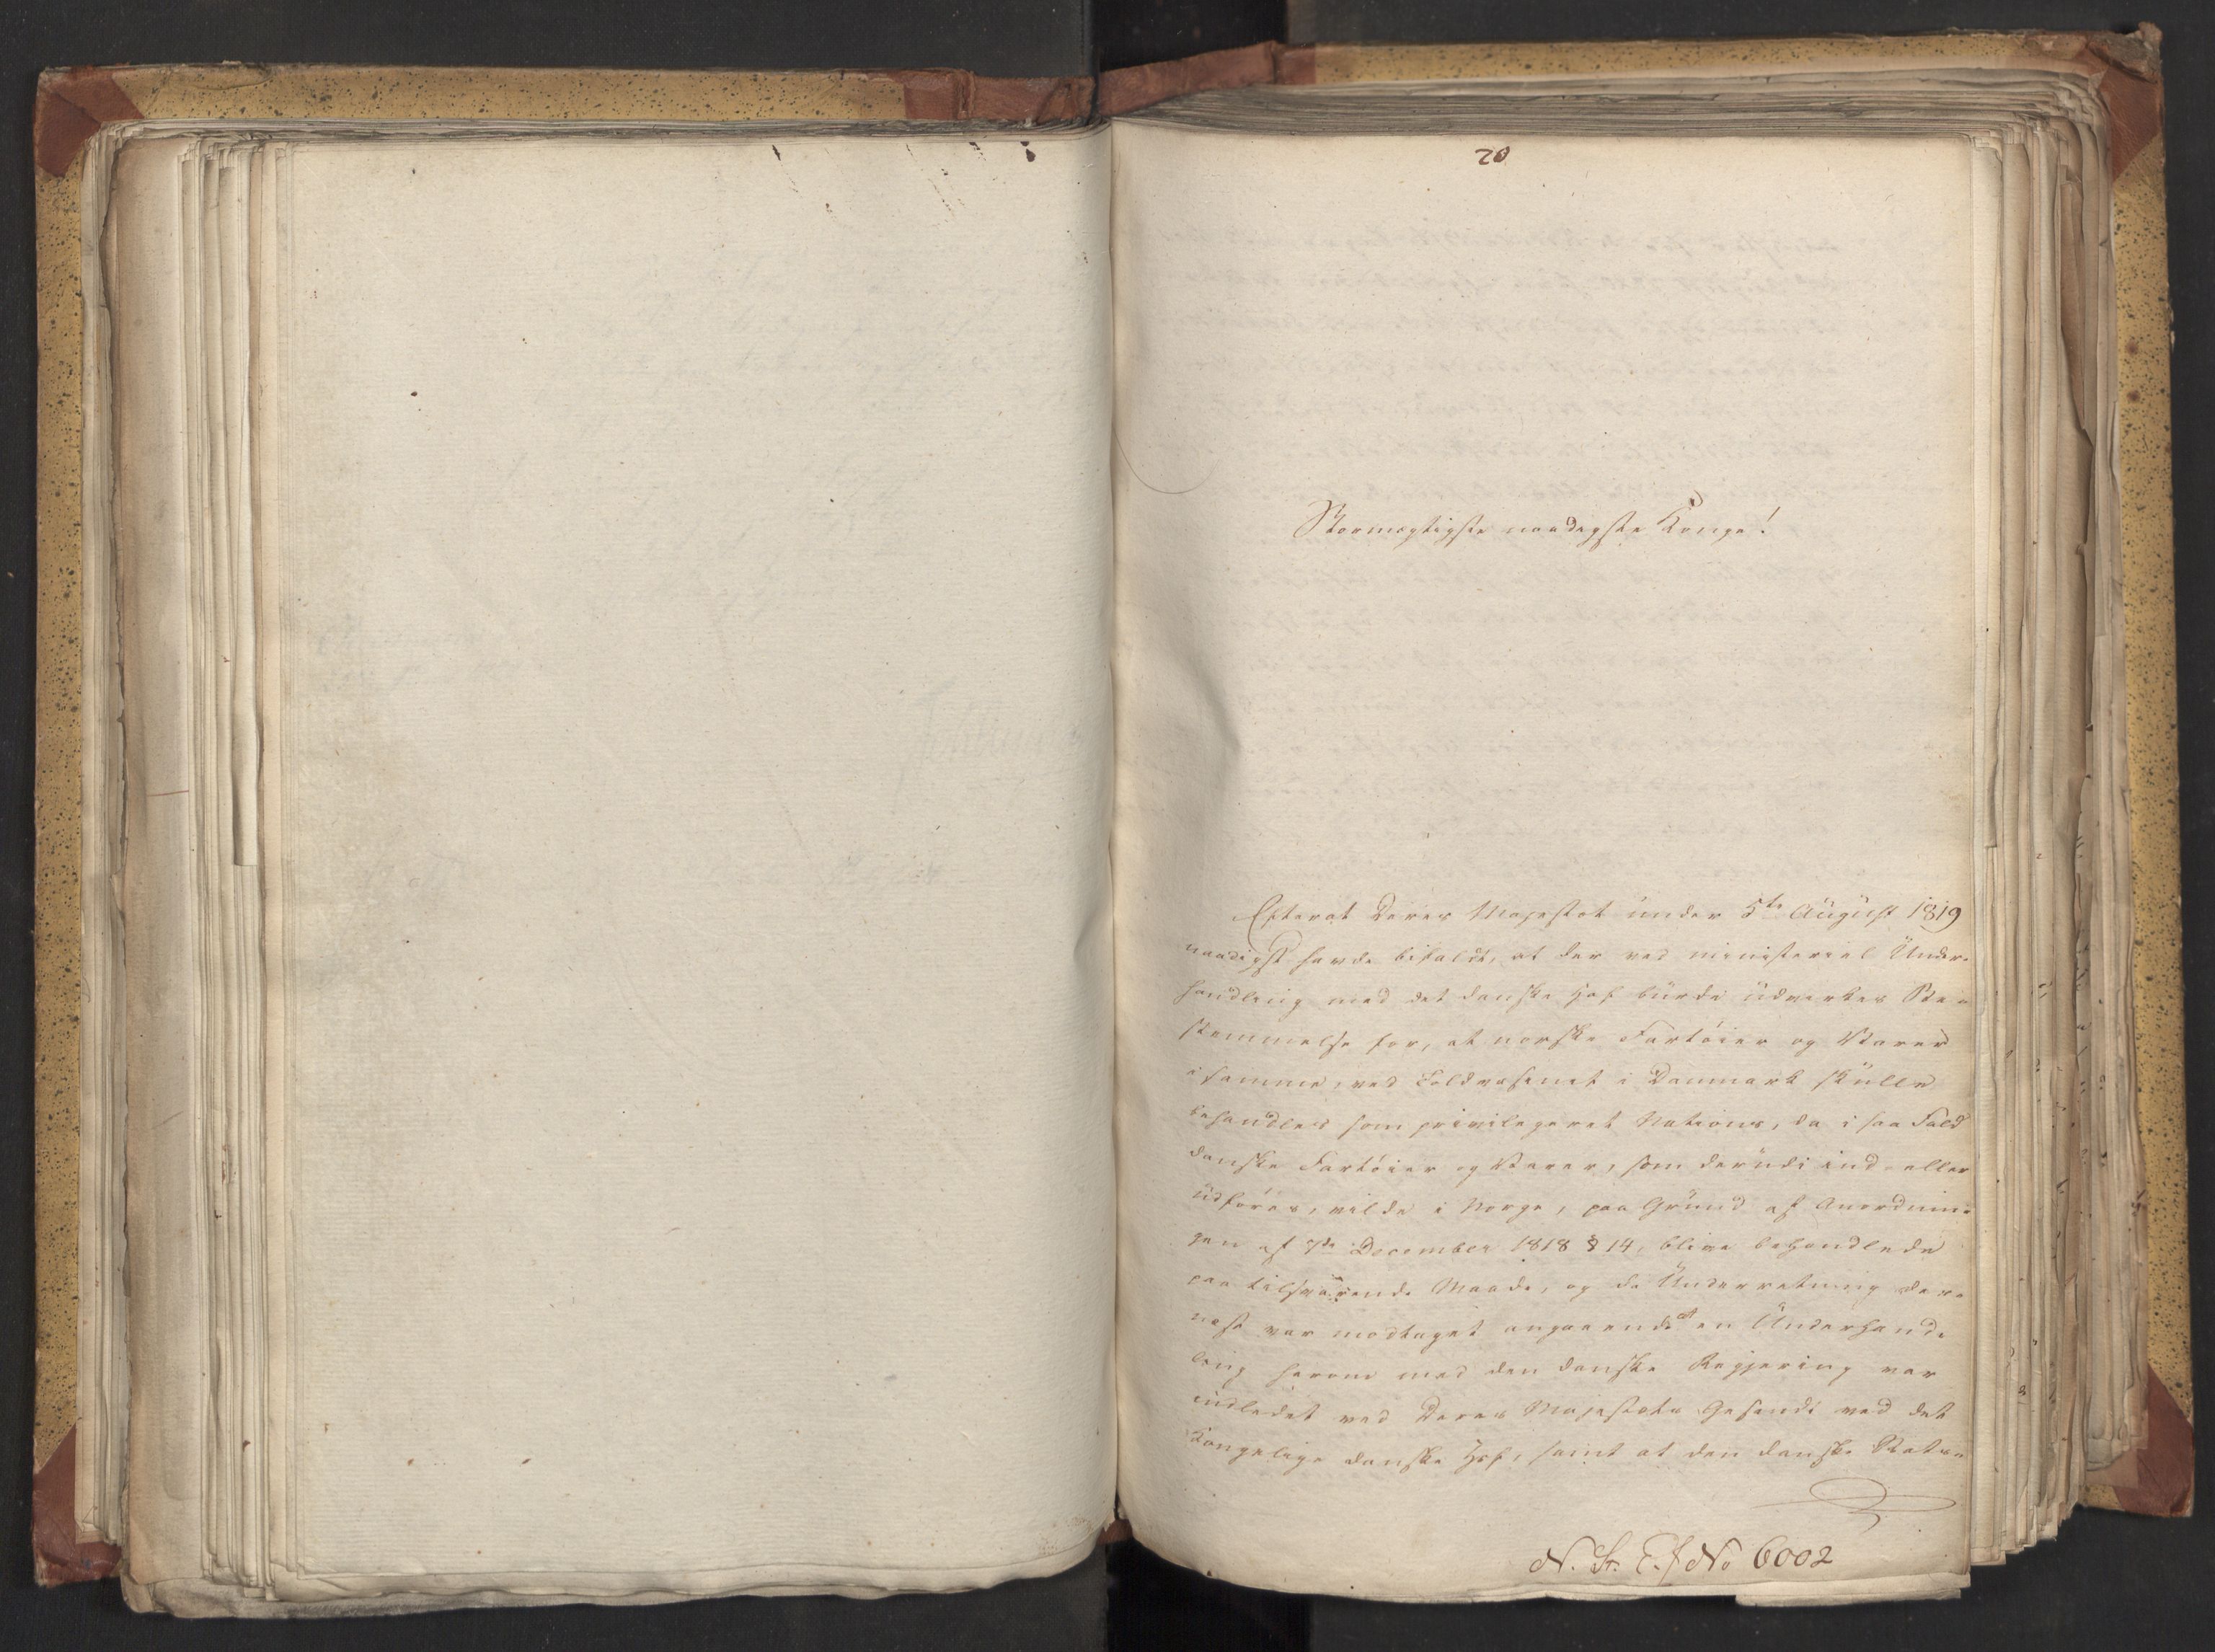 20
Stormægtigste naadigste Konge!
Efterat Deres Majestæt under 5te August 1819
naadigst havde bifaldt, at der ved ministeriel Under-
handling med det danske Hof burde udvirkes Be-
stemmelse for, at norske Fartøier og Varer
i samme, ved Toldvæsenet i Danmark skulle
behandles som privilegeret Nations, da i saa Fald
danske Fartøier og Varer, som derudi ind- eller
udføres, vilde i Norge, paa Grund af Anordnin-
gen af 7de December 1818 § 14, blive behandlede
paa tilsvarende Maade, og da Underretning der-
næst var modtaget angaaende at en Underhand-
ling herom med den danske Regjering var
indledet ved Deres Majestæts Gesandt ved det
Kongelige danske Hof, samt at den danske Stats-
N. St. E. f No 6002